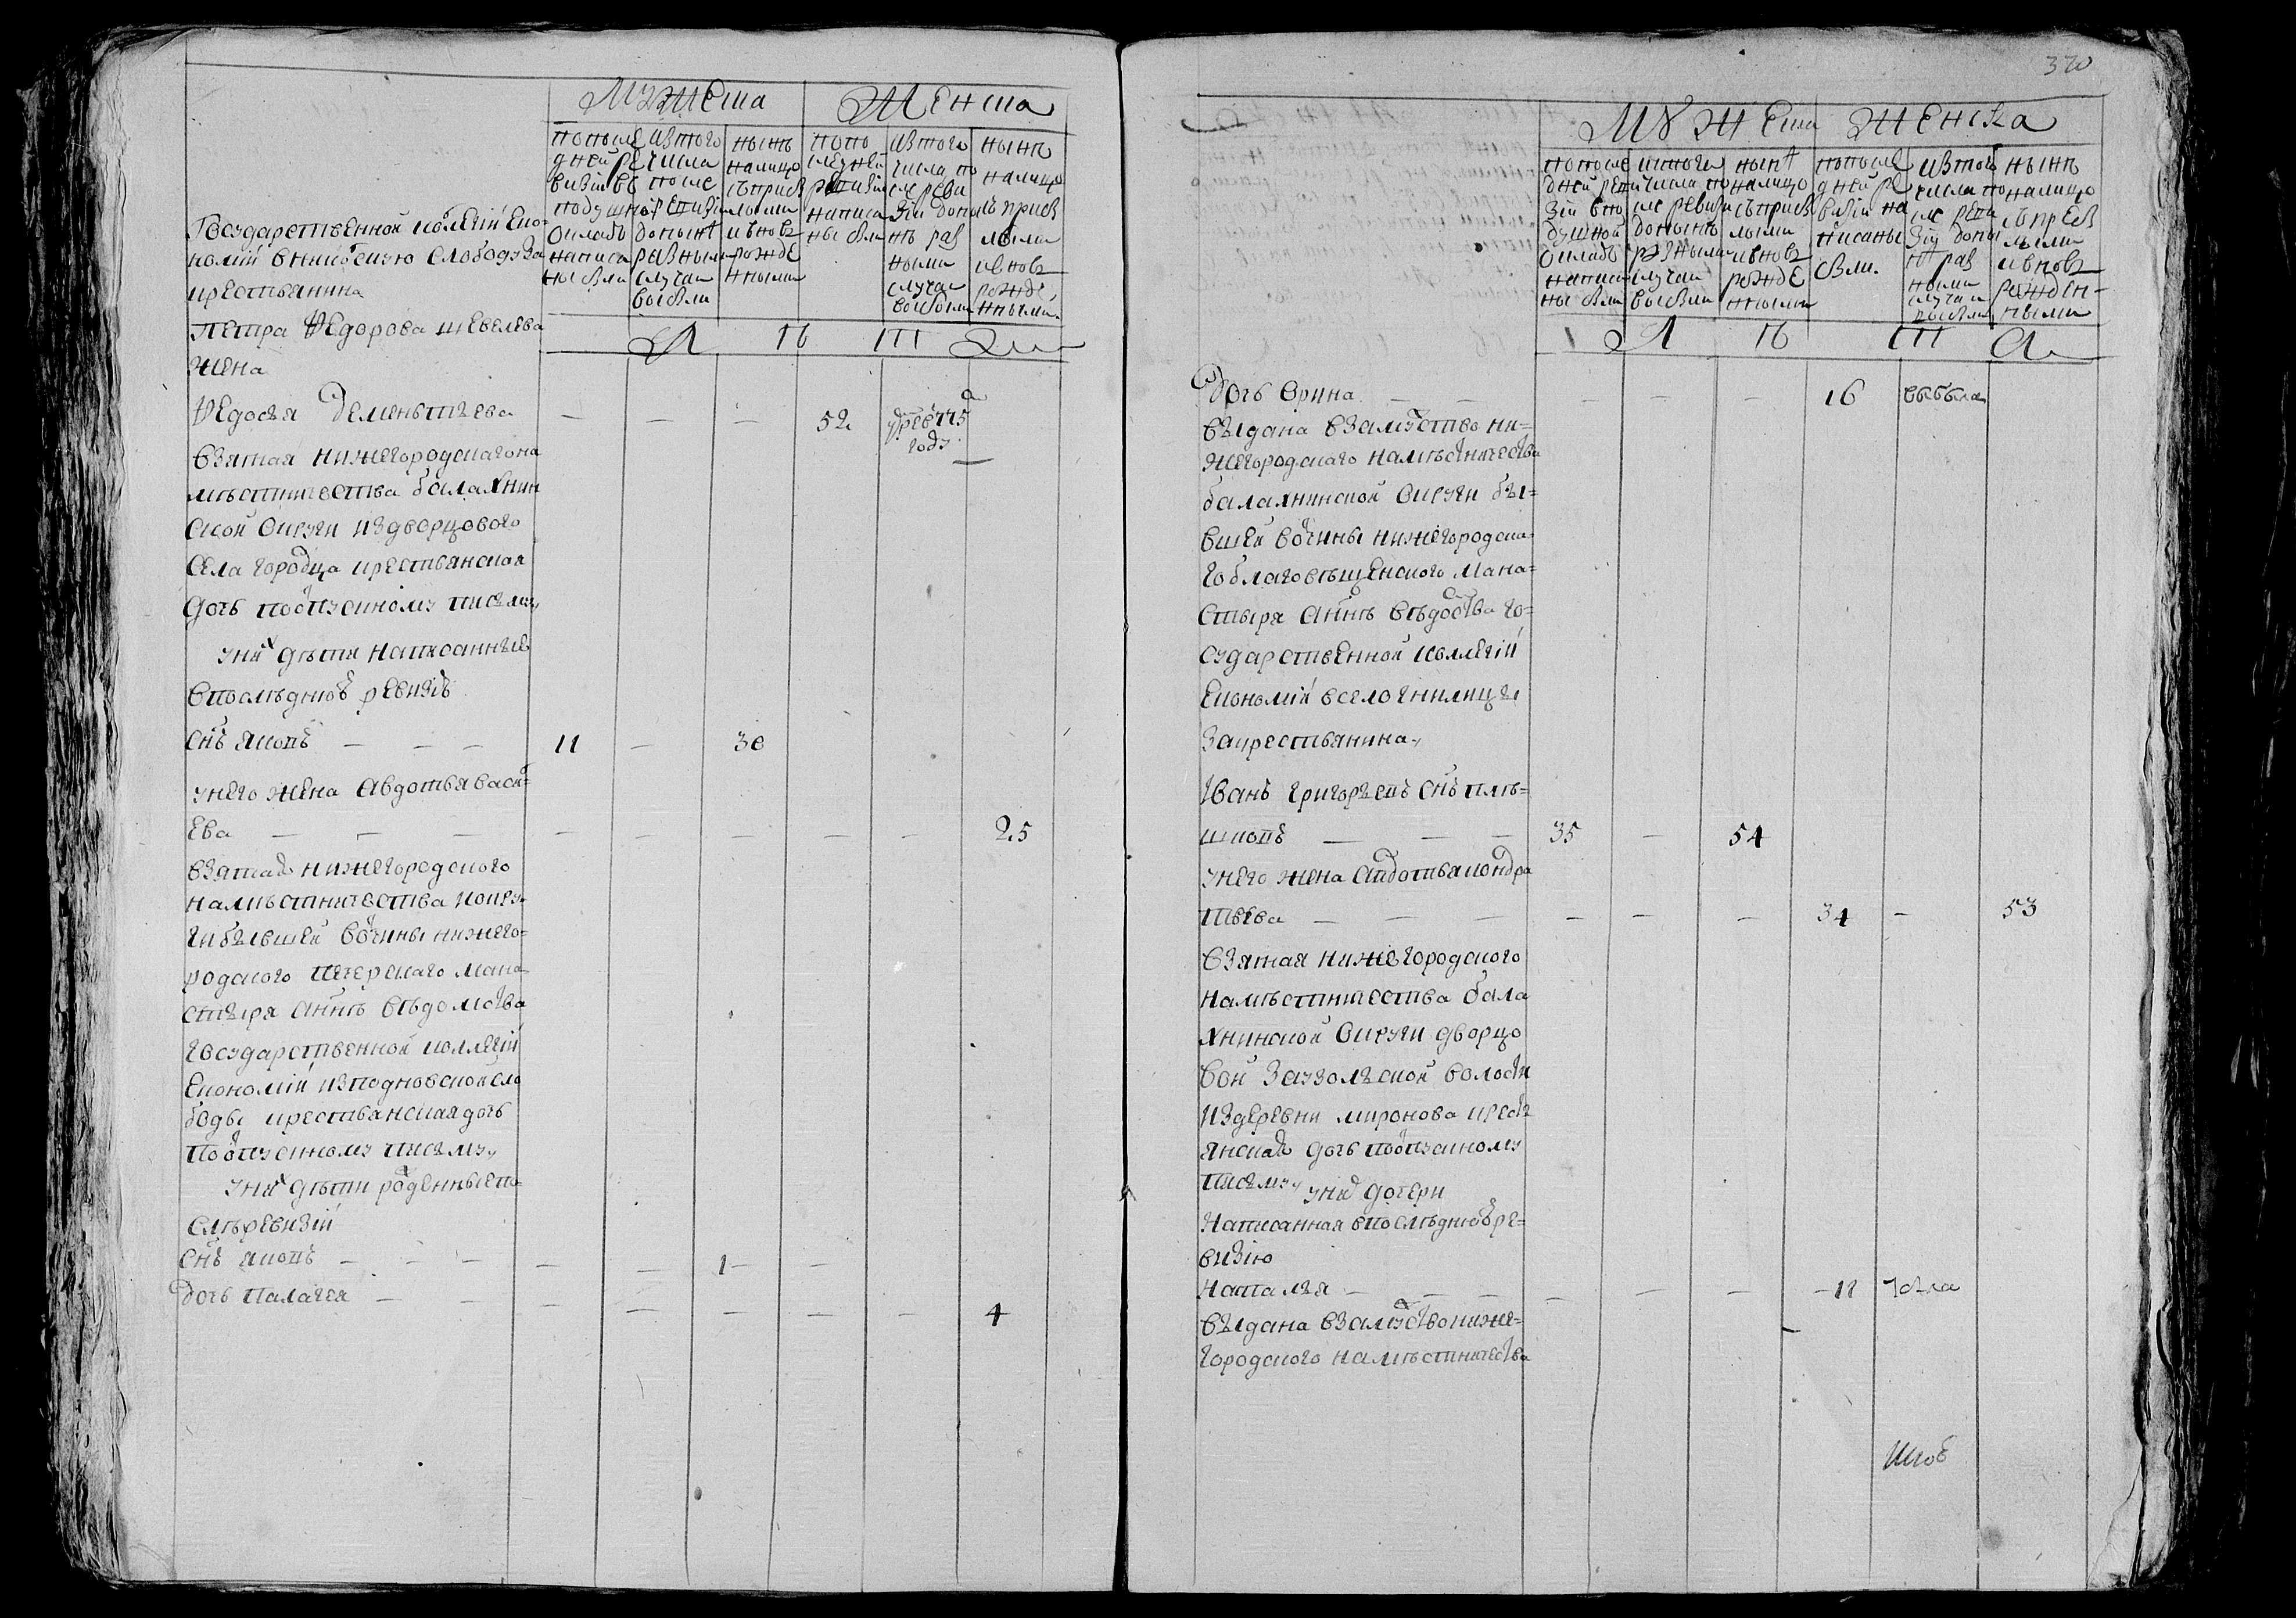 Мужеска Женска
попосле
дней ре
визіи въ
подушно
окладъ
написа
ны были
изтого
числа
после
ревизіи
донынѣ
разными
случаи
выбыли
нынѣ
налицо
съприсы
лыми
ивновь
рожде
нными
попо
следней
ревизіи
написа
ны были
изтого
числа по
сле реви
зіи доны
нѣ раз
ными
случаи
выбыли
нынѣ
налицо
съ присы
лыми
ивновь
рожде
нными
Государственной колегіи Еко=
номіи
крестьянина
Петра Федорова шевелева
жена
Федосья Дементьева — — — 52 775
году
взятая нижегородскагона
мѣстничества балахнин
ской округи издворцового
села городца крестьянская
дочь поотпускному писму
унихъ дѣти написанныя
впослѣднюю ревизію
снъ яковъ — — — 11 — 30
унего жена Авдотья васил=
ева — — — — — — — — 25
взятая нижегородского
намѣстничества
гибывшей вочины нижего=
родского печерскаго мана
стыря аннѣ вѣдомства
государственной коллегіи
Економіи изподновской сло
боды крестьянская дочь
поотпускному писму
унихъ дѣти рожденныепо
слѣревизіи
снъ яковъ — — — — — 1 — —
дочь Палагея — — — — — — — 4
320
Мужеска Женска
попосле
дней реви
зіи впо
душной
окладъ
написа
ны были
изтого
числа по
сле ревизи
донынѣ
разными
случаи
выбыли
нынѣ
налицо
съприсы
лыми
ивновь
рожде
нными
попосле
дней ре
визіи на
писаны
были
изтого
числа по
сле реви
зіи доны
нѣ раз
ными
случаи
выбыли
нынѣ
налицо
съ присы
лыми
ивновь
рожден=
ными
Дочь Орина — — — — — 16 выбыла
выдана взамужство ни=
жегородскаго намѣстничества
балахнинской округи бы=
вшей вочины нижегородска
го благовѣщенского мана=
стыря аннѣ вѣдомства го=
сударственной коллегіи
Економіи всело гнилицы
закрестьянина
Иванъ Григорьевъ снъ плѣ=
шковъ — — — 35 — 54
унего жена Авдотья кондра
тьева — — — — — — 34 — 53
взятая нижегородского
намѣстничества бала
хнинской округи дворцо
вой заузольской волости
издеревни миронова крестья
янская дочь поотпускному
писму унихъ дочери
написанная впослѣднюю ре=
визію
Наталья — — — — — — — 11
выдана взамужство ниже=
городского намѣстничества